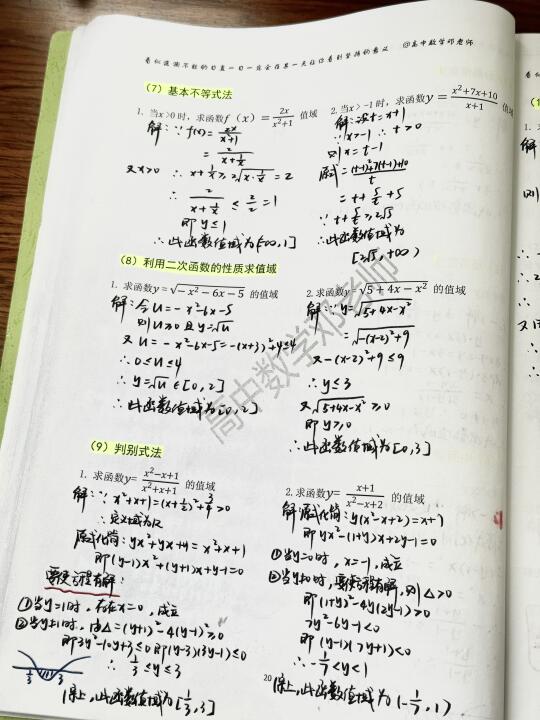 看似波澜不惊的日复一日一定会在某一天让你看到坚持的意义 @高中数学邓老师
（7）基本不等式法
1. 当x>0时，求函数f（x）= 2x/(x²+1) 值域
解：∵ f(x) = 2x/(x²+1)
= 2/(x+1/x)
又x>0 ∴ x+1/x ≥ 2√(x·1/x) = 2
∴ 2/(x+1/x) ≤ 2/2 = 1
即 y≤1
2. 当x>-1时，求函数y = (x²+7x+10)/(x+1) 值域
解：设t=x+1
∵x>-1 ∴t>0
则x=t-1
原式=((t-1)²+7(t-1)+10)/t
= t+4/t+5
∴此函数值域为
（8）利用二次函数的性质求值域
1. 求函数y=√(-x²-6x-5) 的值域
解：令u=-x²-6x-5
则u≥0且y=√u
又u=-x²-6x-5=-(x+3)²+4≤4
∴0≤u≤4
∴y=√u∈[0,2]
∴此函数值域为[0,2]
2. 求函数y=√(5+4x-x²) 的值域
解：y=√(5+4x-x²)
=√(-(x-2)²+9)
又-(x-2)²+9≤9
∴y≤3
又√(5+4x-x²)≥0
即y≥0
∴此函数值域为[0,3]
（9）判别式法
1. 求函数y= (x²-x+1)/(x²+x+1) 的值域
解：∵x²+x+1=(x+1/2)²+3/4>0
∴定义域为R
即(y-1)x²+(y+1)x+y-1=0
要使方程有解：
①当y=1时，存在x=0，成立
②当y≠1时，由△=(y+1)²-4(y-1)²≥0
即3y²-10y+3≤0即(y-3)(3y-1)≤0
∴1/3≤y≤3
1/3 3
综上，此函数值域为[1/3,3]
2. 求函数y= (x+1)/(x²-x+2) 的值域
解：原式化简：y(x²-x+2)=x+1
即yx²-(1+y)x+2y-1=0
①当y=0时，x=-1，成立
即(1+y)²-4y(2y-1)>0
7y²-6y-1<0
即(y-1)(7y+1)<0
∴-1/7<y<1
综上，此函数值域为(-1/7,1)
20
高中数学邓老师